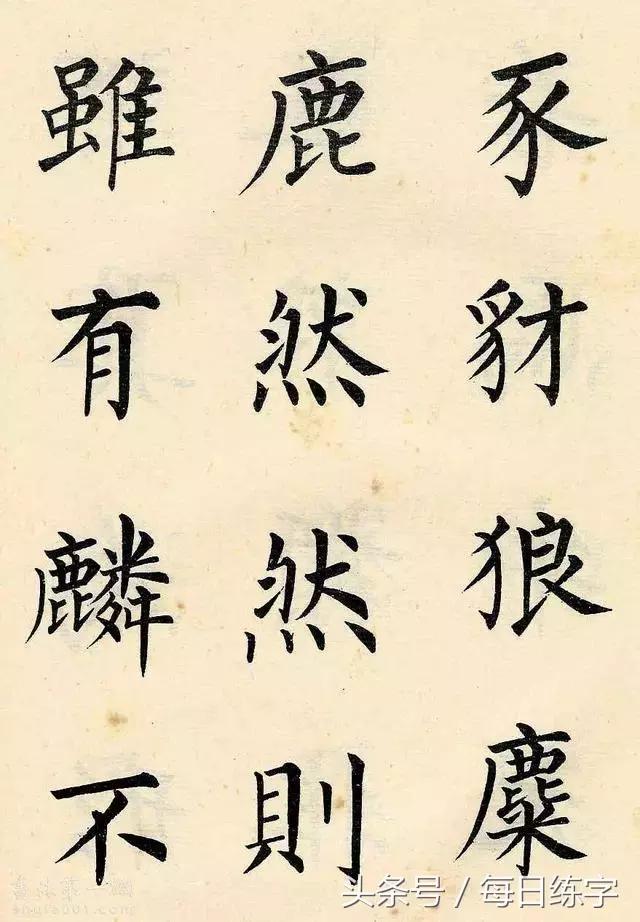 豕豺狼麋
鹿然然則
雖有麟不
头条号 / 每日练字